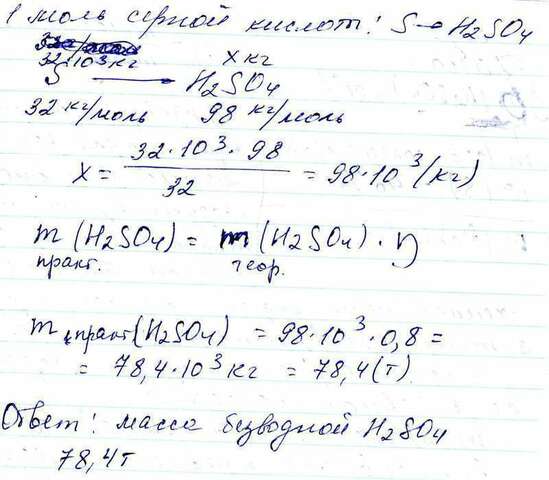 1 моль серной кислоты: S → H2SO4
32·10³ кг x кг
S → H2SO4
32 кг/моль 98 кг/моль
x = 32·10³·98 / 32 = 98·10³ (кг)
m (H2SO4) = m (H2SO4) · η
практ. теор.
m практ (H2SO4) = 98·10³·0,8 =
= 78,4·10³ кг = 78,4 (т)
Ответ: масса безводной H2SO4
78,4т